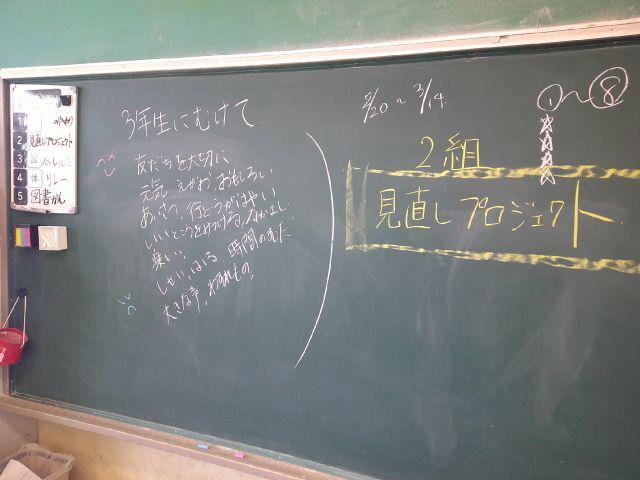 1
2 見直しプロジェクト
3
4 体 リレー
5 図書かん
3年生にむけて
友だちを大切に
元気 えがお、おもしろい
あいさつ、行どうがはやい
いいところをみつける、なかよし
楽しい
しゃべる、時間のむだ
大きな声、わすれもの
2/20 〜 3/14
①〜⑧
2組
見直しプロジェクト